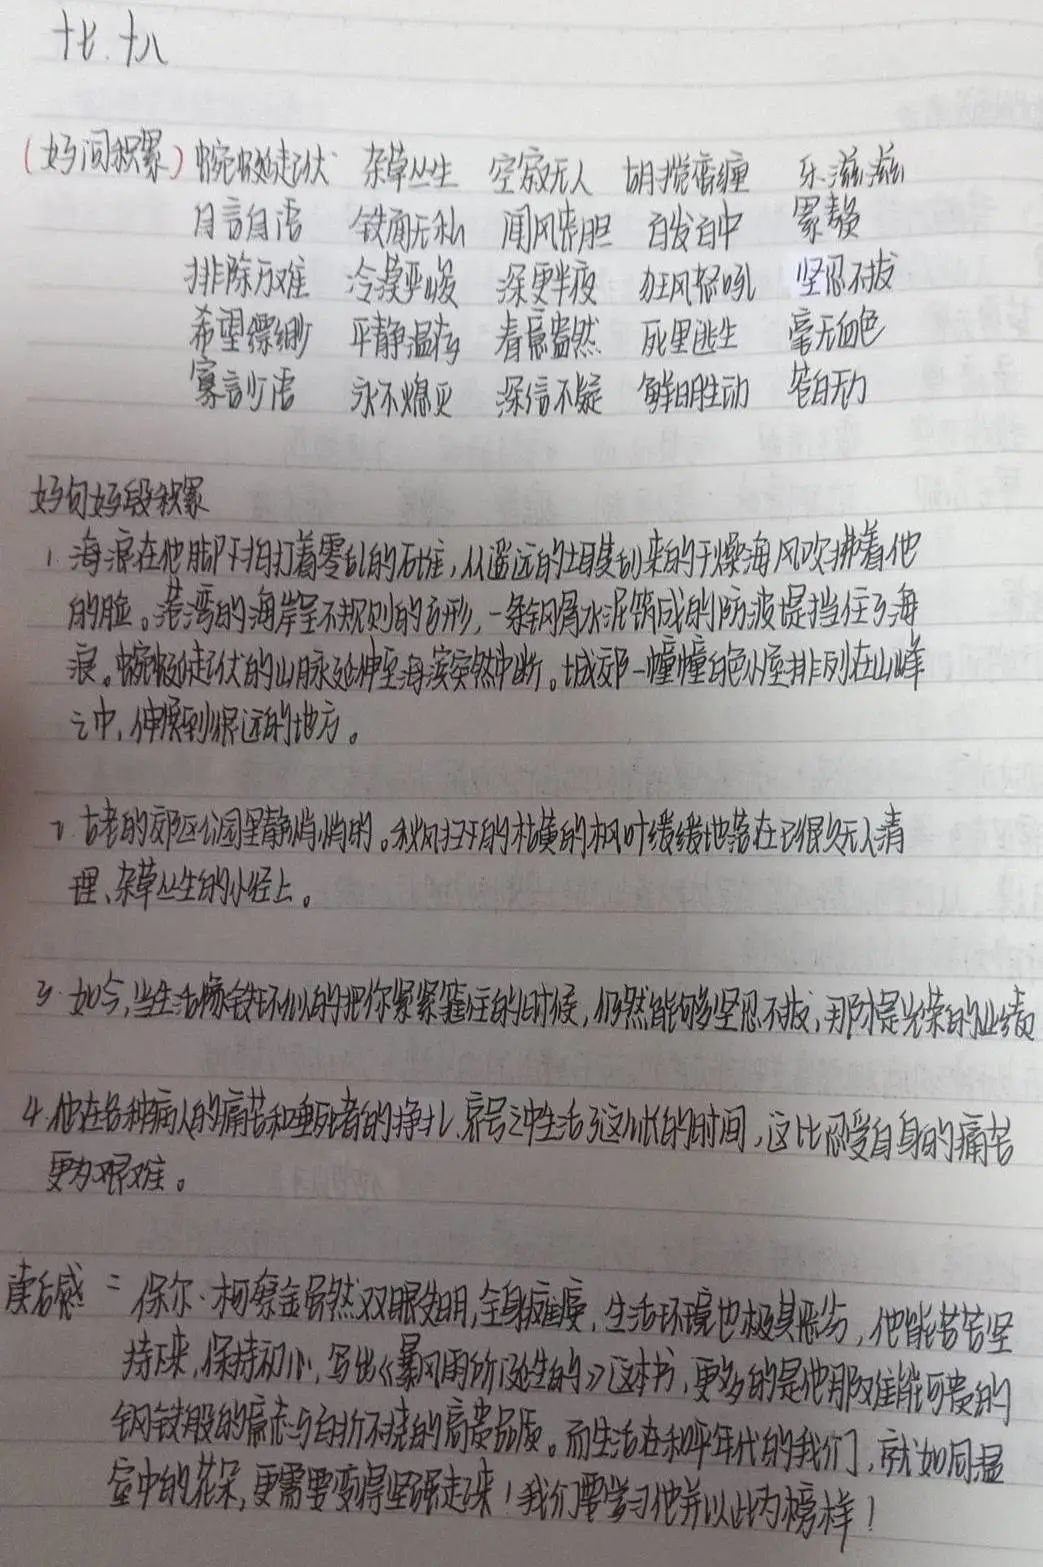 十七.十八
(好词积累) 蜿蜒起伏 杂草丛生 空寂无人 胡搅蛮缠 乐滋滋
自言自语 铁面无私 闻风丧胆 百发百中 累赘
排除万难 冷漠严峻 深更半夜 狂风怒吼 坚忍不拔
希望缥缈 平静温存 春意盎然 死里逃生 毫无血色
寡言少语 永不熄灭 深信不疑 鲜明生动 苍白无力
好句好段积累
1. 海浪在他脚下拍打着零乱的石堆,从遥远的土耳其刮来的干燥海风吹拂着他
的脸。港湾的海岸呈不规则的方形,一条钢骨水泥筑成的防波堤挡住了海
浪。蜿蜒起伏的山脉延伸至海滨突然中断。城郊一幢幢白色小屋排列在山峰
之中,伸展到很远的地方。
2. 古老的郊区公园里静悄悄的。秋风扫下的枯黄的枫叶缓缓地落在已很久无人清
理、杂草丛生的小径上。
3. 如今,当生活像铁环似的把你紧紧箍住的时候,仍然能够坚忍不拔,那才是光荣的业绩
4. 他在各种病人的痛苦和垂死者的挣扎、哀号之中生活了这么长的时间,这比忍受自身的痛苦
更为艰难。
读后感二 保尔·柯察金虽然双眼失明,全身瘫痪,生活环境也极其恶劣,他能苦苦坚
持下来,保持初心,写出《暴风雨所诞生的》这本书,更多的是他那难能可贵的
钢铁般的意志与百折不挠的高贵品质。而生活在和平年代的我们,就如同温
室中的花朵,更需要变得坚强起来!我们要学习他并以此为榜样!